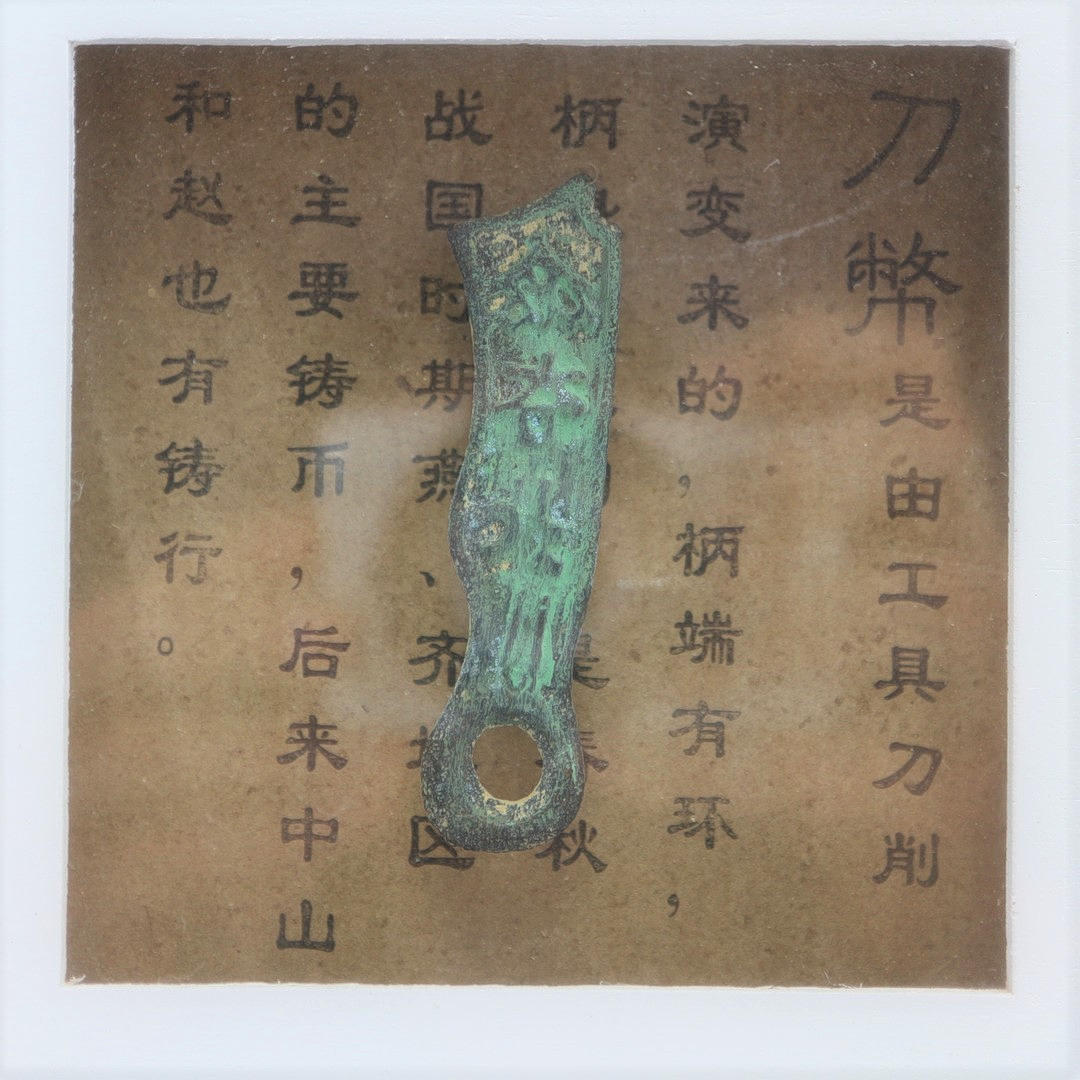 刀幣是由工具刀削
演变来的，柄端有环，
柄秋
战国时期燕、齐区
的主要铸币，后来中山
和赵也有铸行。